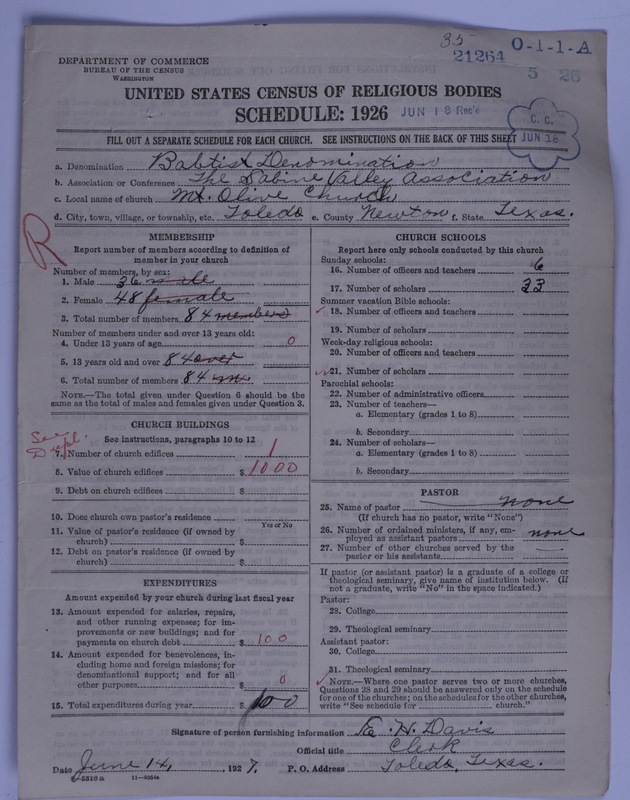 35
21264 O-1-1-A
5 26
DEPARTMENT OF COMMERCE
BUREAU OF THE CENSUS
WASHINGTON
UNITED STATES CENSUS OF RELIGIOUS BODIES
SCHEDULE: 1926 JUN 18 Rec'd
C. C.
JUN 18
FILL OUT A SEPARATE SCHEDULE FOR EACH CHURCH. SEE INSTRUCTIONS ON THE BACK OF THIS SHEET
a. Denomination Babtist Denomination
b. Association or Conference The Sabine Valley Association
c. Local name of church Mt. Olive Church
d. City, town, village, or township, etc. Toledo e. County Newton f. State Texas.
R
MEMBERSHIP
Report number of members according to definition of
member in your church
Number of members, by sex:
1. Male 36 male
2. Female 48 female
3. Total number of members 84 members
Number of members under and over 13 years old:
4. Under 13 years of age 0
5. 13 years old and over 84 over
6. Total number of members 84 m
NOTE.—The total given under Question 6 should be the
same as the total of males and females given under Question 3.
CHURCH BUILDINGS
See instructions, paragraphs 10 to 12
See
Dupl.
7. Number of church edifices 1
8. Value of church edifices $ 1000
9. Debt on church edifices $
10. Does church own pastor's residence
Yes or No
11. Value of pastor's residence (if owned by
church) $
12. Debt on pastor's residence (if owned by
church) $
EXPENDITURES
Amount expended by your church during last fiscal year
13. Amount expended for salaries, repairs,
and other running expenses; for im-
provements or new buildings; and for
payments on church debt $ 100
14. Amount expended for benevolences, in-
cluding home and foreign missions; for
denominational support; and for all
other purposes $ 0
15. Total expenditures during year $ 100
CHURCH SCHOOLS
Report here only schools conducted by this church
Sunday schools:
16. Number of officers and teachers 6
17. Number of scholars 33
Summer vacation Bible schools:
18. Number of officers and teachers
19. Number of scholars
Week-day religious schools:
20. Number of officers and teachers
21. Number of scholars
Parochial schools:
22. Number of administrative officers
23. Number of teachers—
a. Elementary (grades 1 to 8)
b. Secondary
24. Number of scholars—
a. Elementary (grades 1 to 8)
b. Secondary
PASTOR
25. Name of pastor none
(If church has no pastor, write "None")
26. Number of ordained ministers, if any, em-
ployed as assistant pastors none
27. Number of other churches served by the
pastor or his assistants
If pastor (or assistant pastor) is a graduate of a college or
theological seminary, give name of institution below. (If
not a graduate, write "No" in the space indicated.)
Pastor:
28. College
29. Theological seminary
Assistant pastor:
30. College
31. Theological seminary
NOTE.—Where one pastor serves two or more churches,
Questions 28 and 29 should be answered only on the schedule
for one of the churches; on the schedules for the other churches,
write "See schedule for church."
Signature of person furnishing information E. H. Davis
Official title Clerk
Date June 14, 1927. P. O. Address Toledo, Texas.
8-5518 a 11-9354a